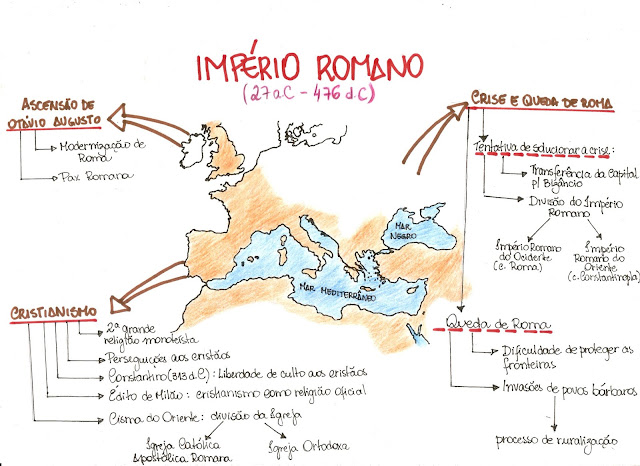 IMPÉRIO ROMANO
(27 a.C - 476 d.C)
ASCENSÃO DE
OTÁVIO AUGUSTO
Modernização de
Roma
Pax Romana
CRISE E QUEDA DE ROMA
Tentativa de solucionar a crise:
Transferência da Capital
p/ Bizâncio
Divisão do Império
Romano
Império Romano
do Ocidente
(c. Roma)
Império
Romano do
Oriente
(c. Constantinopla)
MAR
NEGRO
MAR MEDITERRÂNEO
CRISTIANISMO
2ª grande
religião monoteísta
Perseguições aos cristãos
Constantino (313 d.C): Liberdade de culto aos cristãos
Édito de Milão: cristianismo como religião oficial
Cisma do Oriente: divisão da Igreja
Igreja Católica
Apostólica Romana
Igreja Ortodoxa
Queda de Roma
Dificuldade de proteger as
fronteiras
Invasões de povos bárbaros
processo de ruralização